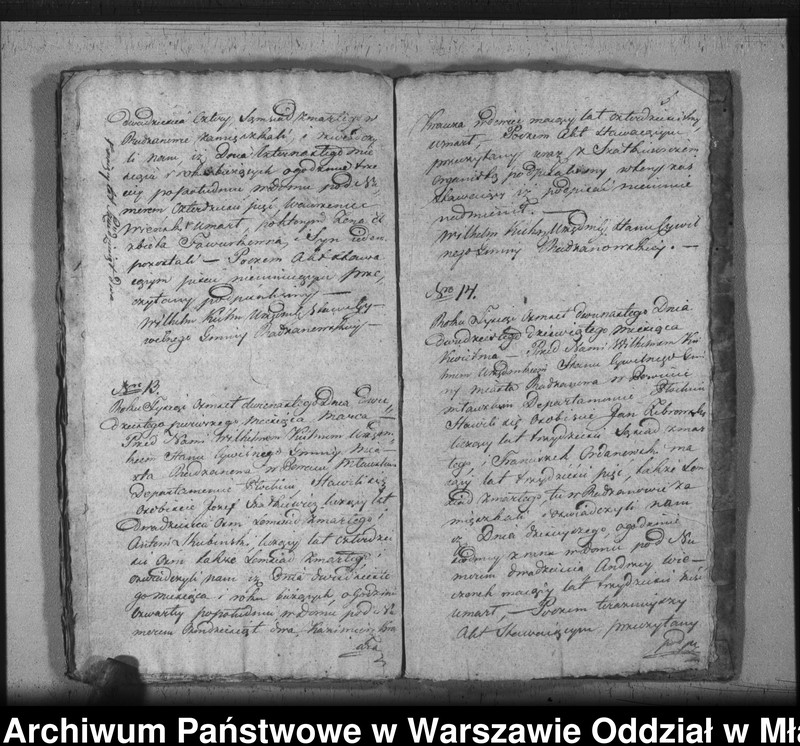 dwudzieścia Cztery Sąmsiad zmarłego w
Radzanowie zamieszkali, i oświadczy
li nam, iż Dnia
siąca i roku bieżących o godzinie trze
ciey popołudniu w domu pod Nu
merem Czterdzieści pięć Wawrzeniec
umarł, po którym Żona El
żbieta i Syn ieden
pozostali — Poczem Akt stawa
iącym pisać nieumieiącym prze,
czytany podpisaliśmy —
Wilhelm Kuhn Urzędnik Stanu Cy
wilnego Gminy Radzanowskiey —
Nro 13.
Roku Tysiąc Ośmset dwunastego Dnia Dwu
dziestego pierwszego Miesiąca Marca —
Przed Nami Wilhelmem Kuhnem Urzęd
nikiem Stanu Cywilnego Gminy Mia
sta Radzanowa w Powiecie Mławskim
Departamencie Płockim Stawili się
osobiście Jozef Szatkiewicz liczący lat
Dwadzieścia Ośm sąmsiad zmarłego i
Antoni Skubinski, liczący lat czterdzie
ści Ośm także Sąmsiad zmarłego, i
oświadczyli nam iż Dnia dwudzieste
go miesiąca i roku bieżących, o godzinie
czwarty popołudniu w domu pod Nu
merem Ośmdziesiąt dwa, Kazimierz
Krawca wdowiec maiący lat
umarł, Poczem Akt Stawaiącym
przeczytany wraz z Szatkiewiczem
Organistą podpisaliśmy wtóry zaś
stawaiący iż podpisać nieumie
nadmienił. —
Wilhelm Kuhn Urzędnik Stanu Cywil
nego Gminy Radzanowskiey. —
Nro 14.
Roku Tysiąc Ośmset dwunastego Dnia
dwudziestego dziewiątego Miesiąca
Kwietnia — Przed Nami Wilhelmem Ku
hnem Urzędnikiem Stanu Cywilnego Gmi
ny Miasta Radzanowa w Powiecie
Mławskim Departamencie Płockim
Stawili się osobiście Jan Zebrowski
liczący lat trzydzieści Sąsiad zmar
łego i Franciszek Ordanowski ma
iący lat trzydzieści pięć, także Sąm
siad zmarłego tu w Radzanowie za
mieszkali i oświadczyli nam
iż Dnia dzisieyszego, o godzinie
siodmey z rana w domu pod Nu
merem dwadzieścia Andrzey Wie
czorek maiący lat trzydzieści sześć
umarł, — Poczem teraznieyszy
Akt Stawaiącym przeczytany
pod
Archiwum Państwowe w Warszawie Oddział w Mła